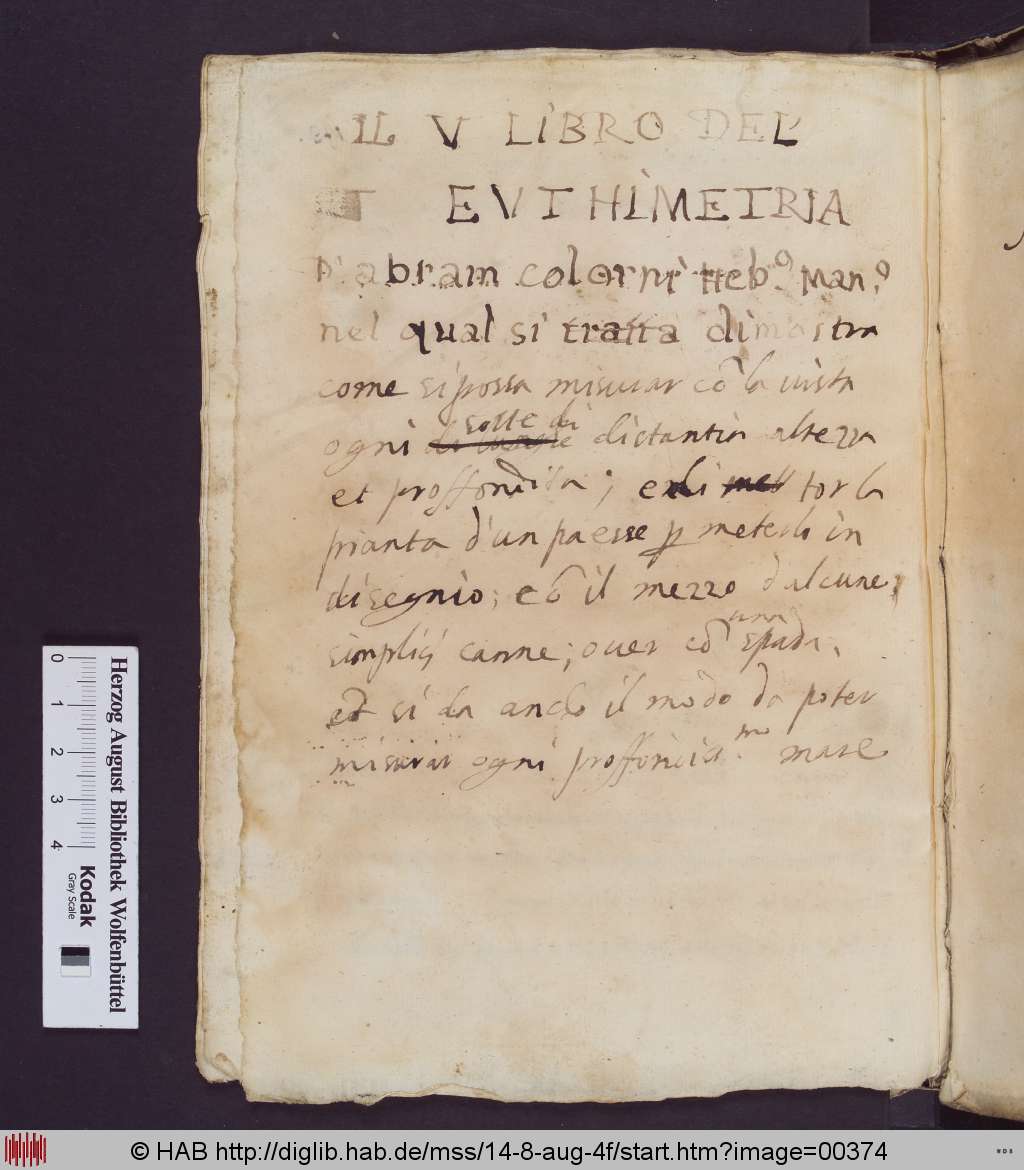 IL V LIBRO DEL'
EVTHIMETRIA
D'abram colorni Heb.º Man.º
nel qual si tratta dimostra
come si possa misurar cõ la vista
sotte di
ogni distantia altezza
et proffondita; e di tor la
pianta d'un paesse ꝑ meterlo in
disegnio; e cõ il mezzo d'alcune
una
simplicj canne; over cõ spada,
et si da ancho il modo da poter
misurar ogni proffondiss.mo mare
0 1 2 3 4
Herzog August Bibliothek Wolfenbüttel
Kodak
Gray Scale
© HAB http://diglib.hab.de/mss/14-8-aug-4f/start.htm?image=00374